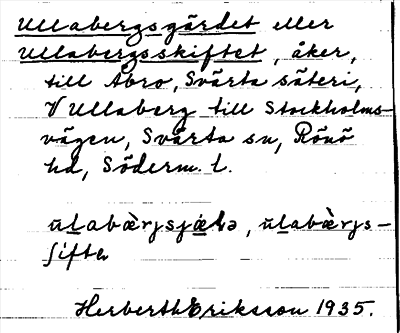 Ullabergsgärdet eller
Ullabergsskiftet, åker,
till Åbro, Svärta säteri,
V Ullaberg till Stockholms-
vägen, Svärta sn, Rönö
hd, Söderm. l.
ɷḻabæ̀rjs-
ʃifta
Herberth Eriksson 1935.